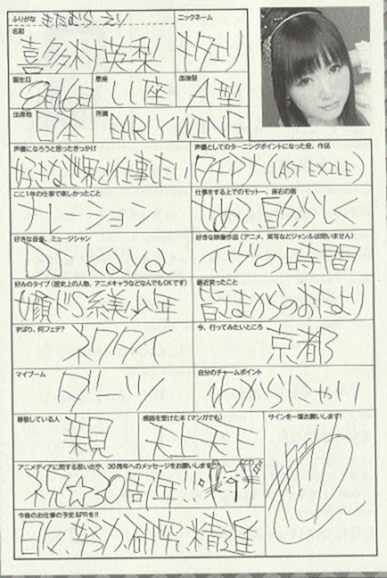 ふりがな きたむら えり
ニックネーム
名前 喜多村英梨
キタエリ
誕生日 8月16日
星座 しし座
血液型 A型
出身地 日本
所属 EARLY WING
声優になろうと思ったきっかけ
好きな世界で仕事したい
声優としてのターニングポイントになった役、作品
タチアナ(LAST EXILE)
ここ1年の仕事で楽しかったこと
ナレーション
仕事をする上でのモットー、座右の銘
自分らしく
好きな音楽、ミュージシャン
DJ Kaya
好きな映像作品(アニメ、実写などジャンルは問いません)
イヴの時間
好みのタイプ(歴史上の人物、アニメキャラなどなんでもOKです)
ドS系美少年
最近笑ったこと
皆さまからのおたより
ずばり、何フェチ?
ネクタイ
今、行ってみたいところ
京都
マイブーム
ダーツ
自分のチャームポイント
わからにゃい
尊敬している人
親
感銘を受けた本(マンガでも)
天上天下
サインを一筆お願いします!
アニメディアに関する思い出や、30周年へのメッセージをお願いします
祝☆30周年!!
今後のお仕事の予定&PRを!!
日々、努力、研究、精進